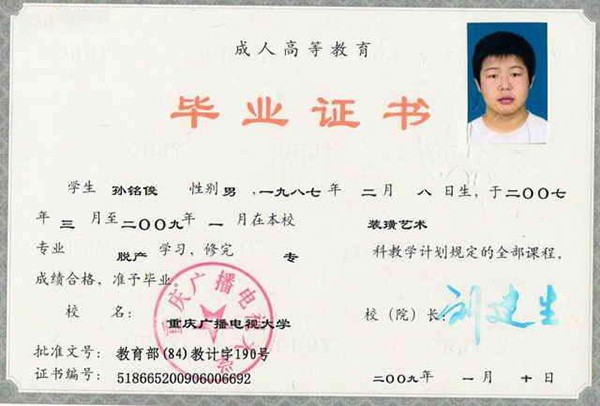 成人高等教育
毕业证书
学生 孙铭俊 性别男,一九八七年 二月 八日生,于二〇〇七
年三月至二〇〇九年一月在本校 装璜艺术
专业 脱产 学习,修完 专 科教学计划规定的全部课程,
成绩合格,准予毕业。
校 名: 重庆广播电视大学 校(院)长: 刘建生
批准文号: 教育部(84)教计字190号
证书编号: 518665200906006692 二〇〇九年 一月 十日
重庆广播电视大学